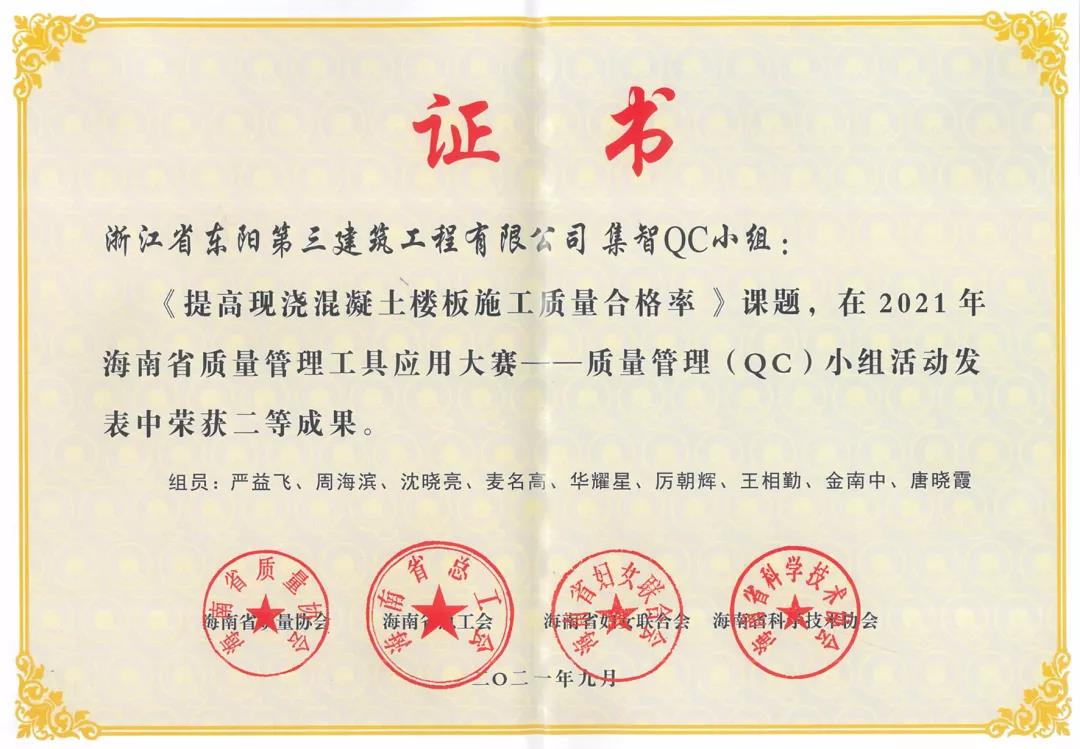 证 书
浙江省东阳第三建筑工程有限公司 集智QC小组：
《提高现浇混凝土楼板施工质量合格率 》课题，在 2021 年
海南省质量管理工具应用大赛——质量管理（QC）小组活动发
表中荣获二等成果。
组员：严益飞、周海滨、沈晓亮、麦名高、华耀星、厉朝辉、王相勤、金南中、唐晓霞
海南省质量协会
海南省总工会
海南省妇女联合会
海南省科学技术协会
海南省质量协会 海南省总工会 海南省妇女联合会 海南省科学技术协会
二〇二一年九月